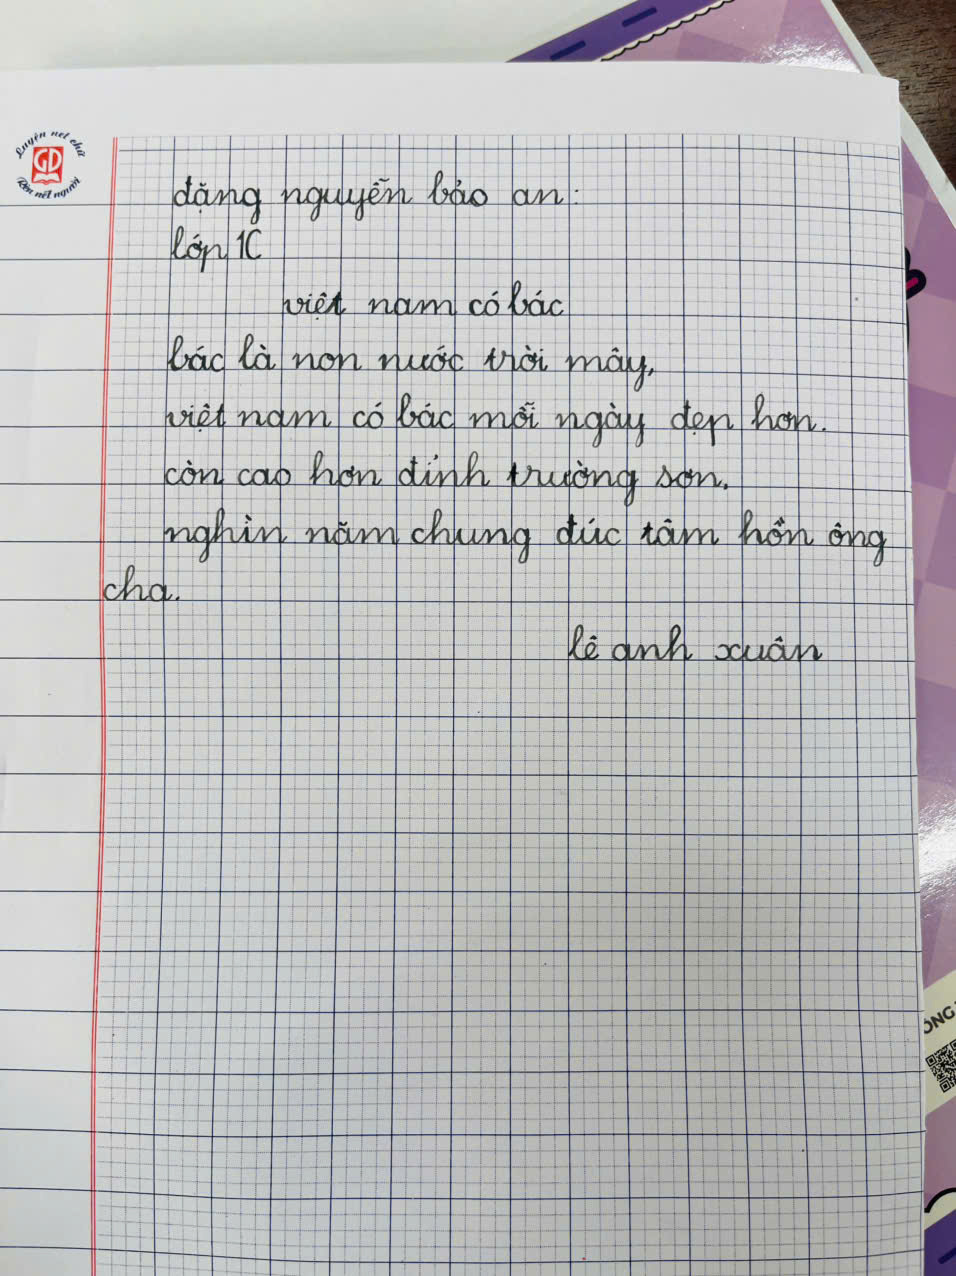 Luyện nét chữ
GD
Rèn nết người
đặng nguyễn bảo an:
lớp 1C
việt nam có bác
bác là non nước trời mây,
việt nam có bác mỗi ngày đẹp hơn.
còn cao hơn đỉnh trường sơn,
nghìn năm chung đúc tâm hồn ông
cha.
lê anh xuân
ÓNG